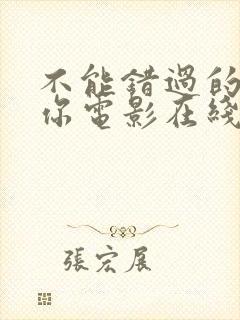 不能錯過的
你電影在綫
張宏展